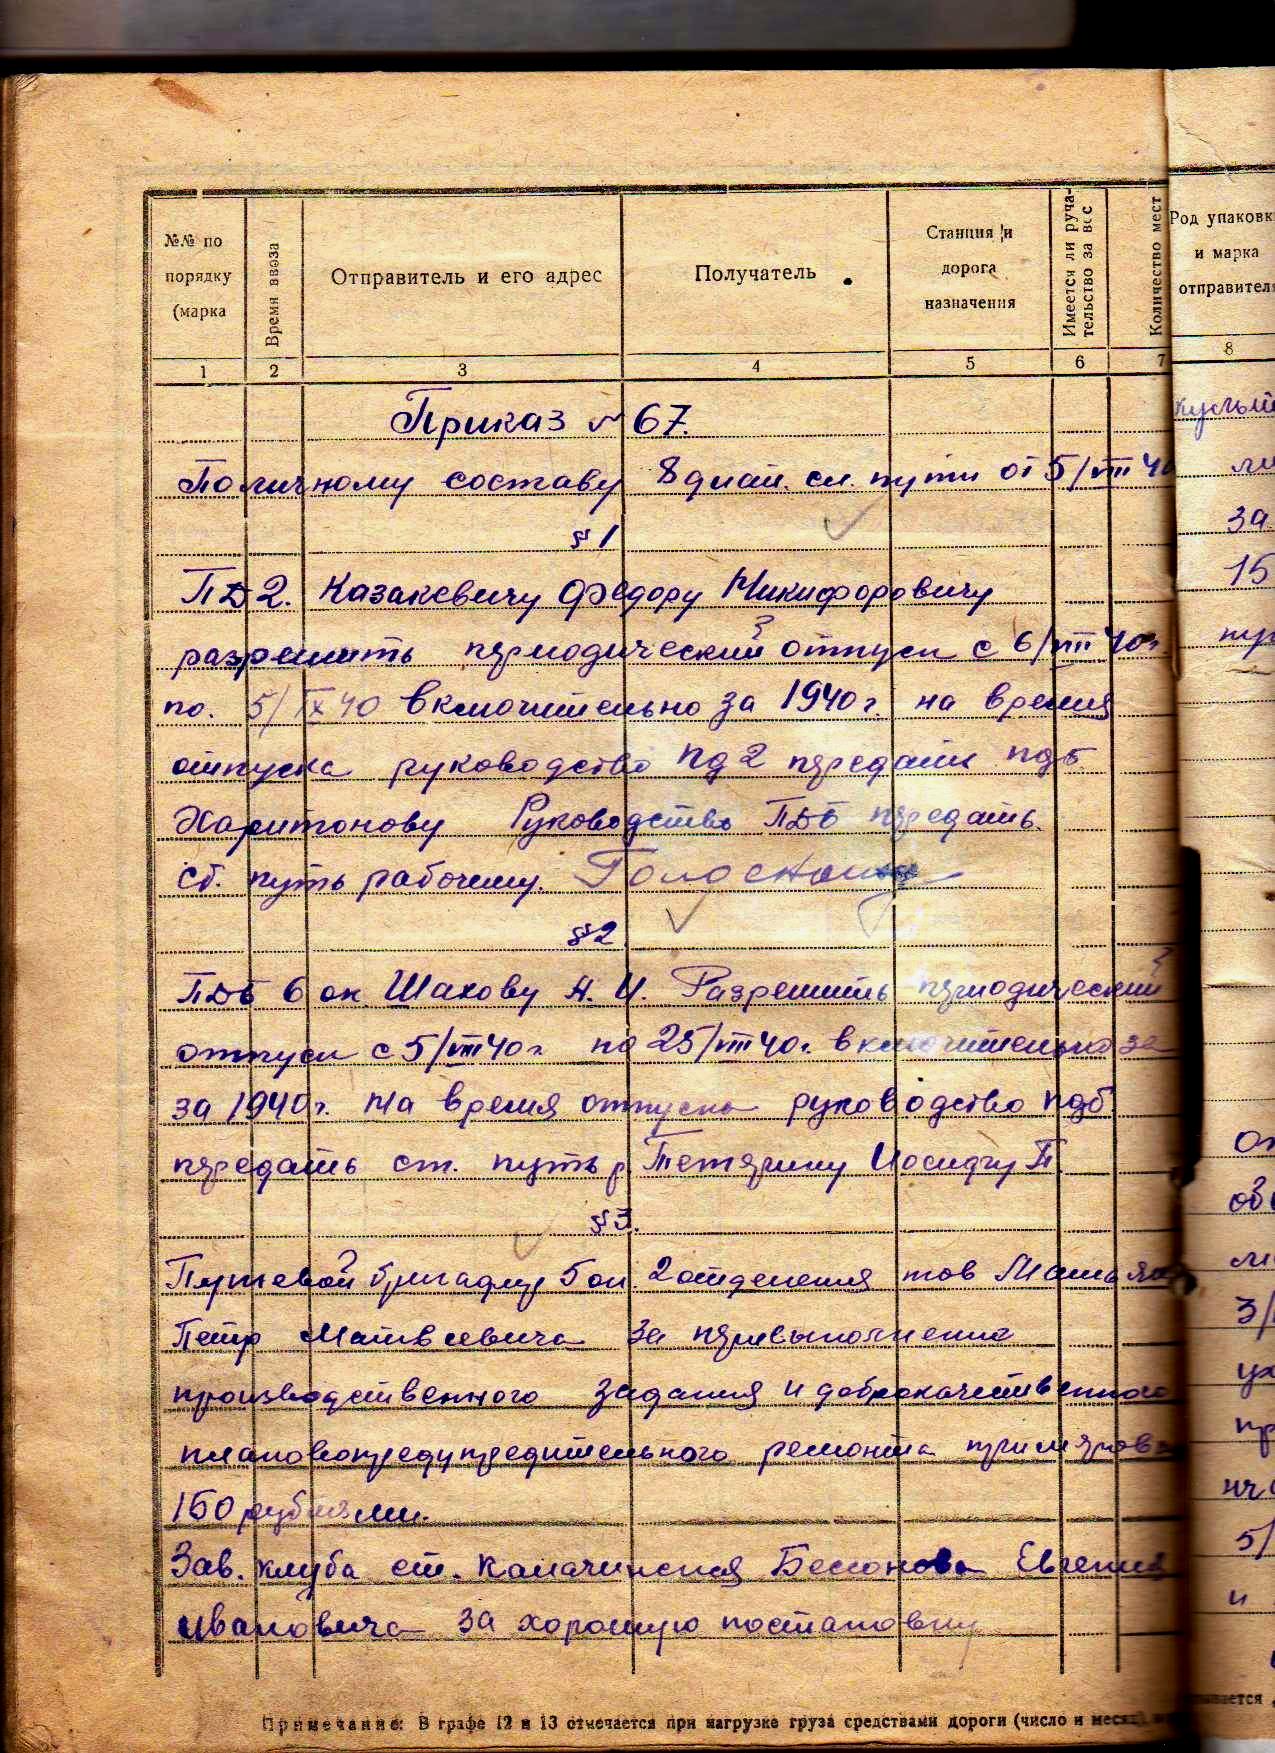 №№ по порядку (марка
Время ввоза
Отправитель и его адрес
Получатель
Станция и дорога назначения
Имеется ли руча-
тельство за вес
Количество мест
Род упаковк
и марка
отправителя
1 2 3 4 5 6 7 8
Приказ № 67.
По личному составу 8 дист. сл. пути от 5/VIII 40
§ 1
ПД 2. Казакевичу Федору Никифоровичу
разрешить периодический отпуск с 6/VIII 40 г.
по. 5/IX 40 включительно за 1940 г. на время
отпуска руководство ПД 2 передать ПДБ
Харитонову Руководство ПДБ передать
ст. путь рабочему.
§ 2
ПДБ 6 ок. Шахову А. И. Разрешить периодический
отпуск с 5/VIII 40 г. по 25/VIII 40 г. включительно за
за 1940 г. На время отпуска руководство ПДБ
передать ст. путь р. Иосифу П.
§ 3.
Путевой бригадир 5 ок. 2 отделения тов
Петр Матвеевича за перевыполнение
производственного задания и доброкачественного
плановопредупредительного ремонта премировать
150 рублями.
Зав. клуба ст. Калачинская Бессонова Евгения
Ивановича за хорошую постановку
за
15
3/
5/
и
Примечание: В графе 12 и 13 отмечается при нагрузке груза средствами дороги (число и месяц)